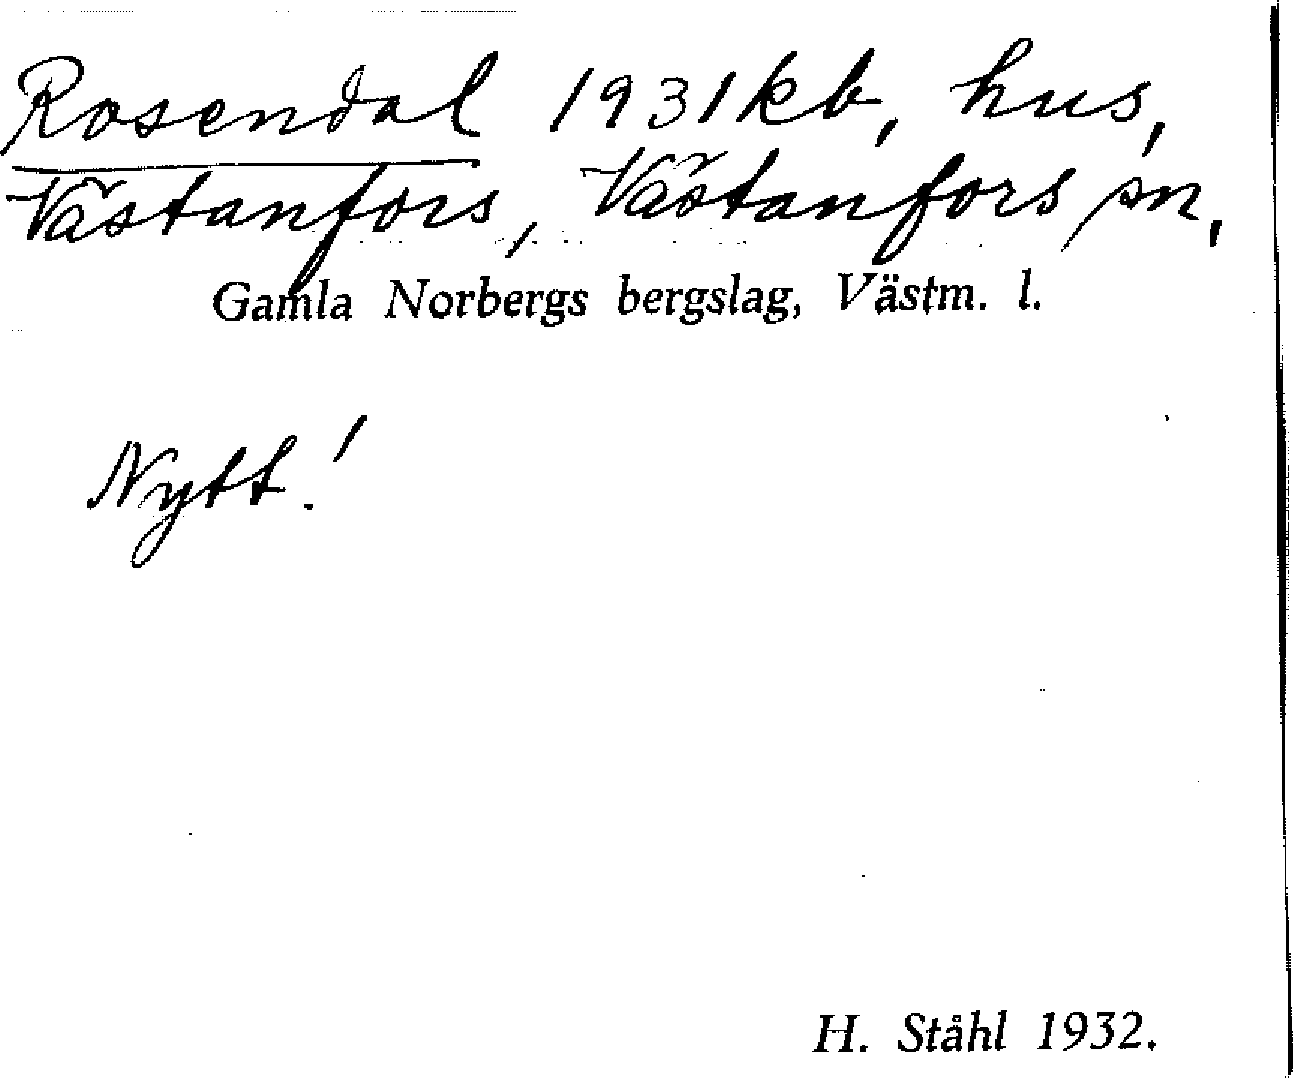 Rosendal 1931 kb, hus,
Västanfors, Västanfors sn,
Gamla Norbergs bergslag, Västm. l.
Nytt!
H. Ståhl 1932.